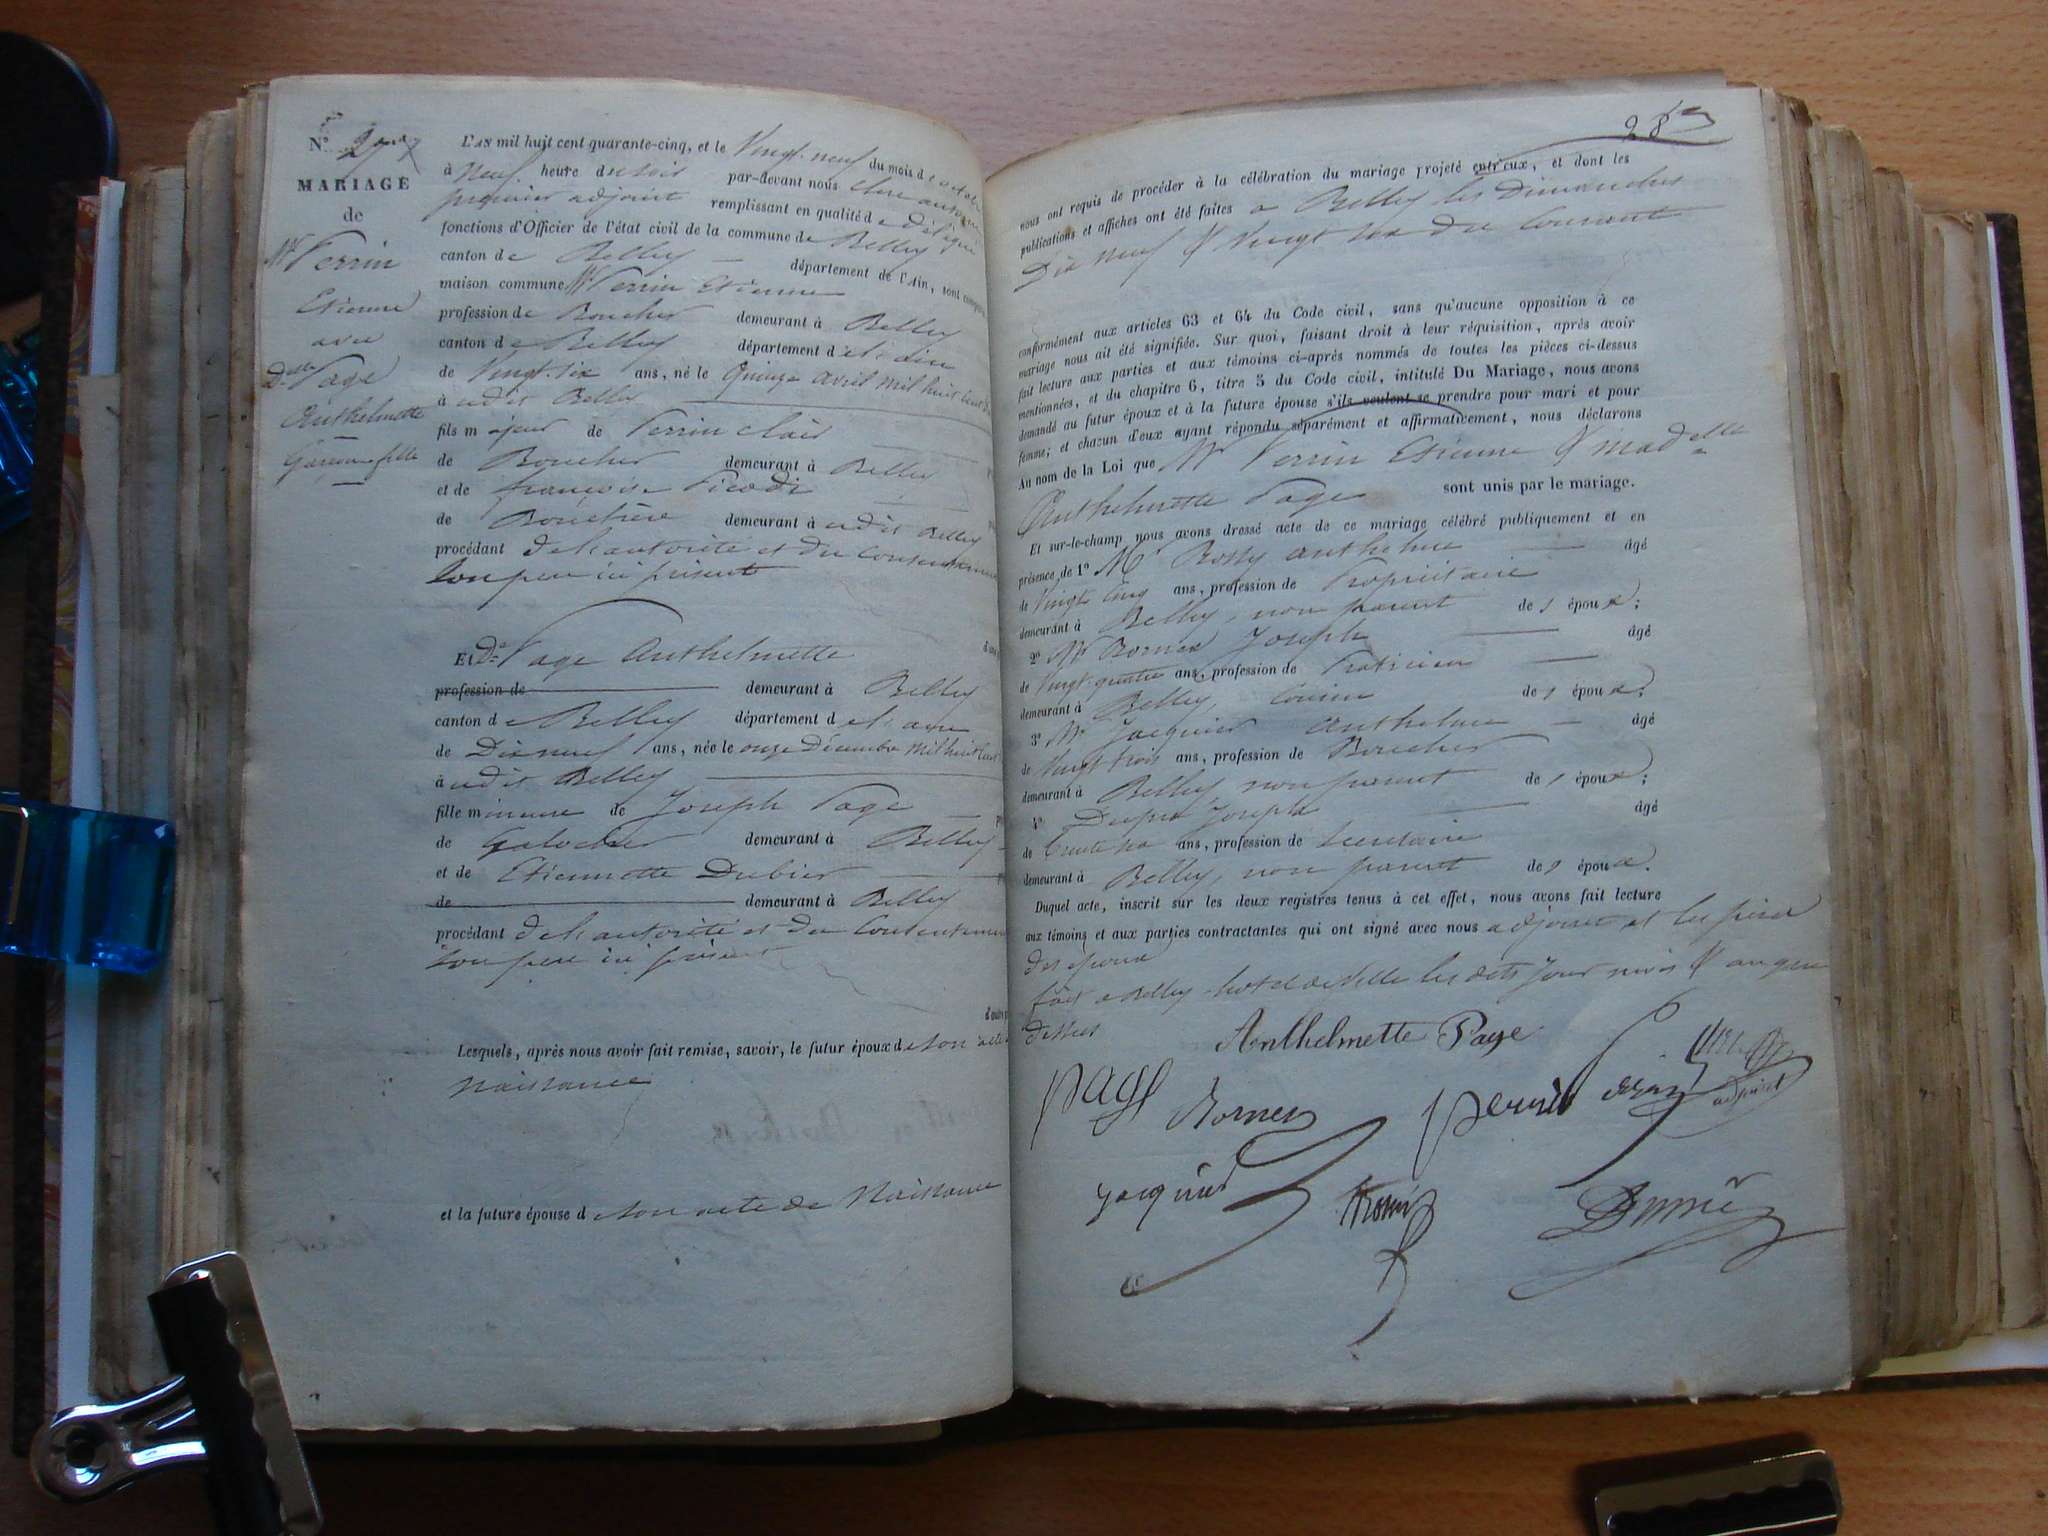 N° 27
MARIAGE
de
Mr Perrin
Etienne
avec
Dlle Page
Anthelmette
Garçon fille
L'AN mil huit cent quarante-cinq, et le Vingt-neuf du mois d'octobre
à Neuf heure du soir par-devant nous
premier adjoint remplissant en qualité de délégué
fonctions d'Officier de l'état civil de la commune de Belley
canton de Belley département de l'Ain, sont comparus
maison commune Mr Perrin Etienne
profession de Boucher demeurant à Belley
canton de Belley département de l'ain
de Vingt-six ans, né le Quinze avril mil huit cent
à udit Belley
fils majeur de Perrin clair
de Boucher demeurant à Belley
et de françoise
de Bouchère demeurant à udit Belley
procédant de l'autorité et du Consentement
son père ici présent
Et Dlle Page Anthelmette
profession de demeurant à Belley
canton de Belley département de l'ain
de Dix neuf ans, née le onze Décembre mil huit cent
à udit Belley
fille mineure de Joseph Page
de Galochier demeurant à Belley
et de Etiennette Dubier
de demeurant à Belley
procédant de l'autorité et du Consentement
son père ici présent
Lesquels, après nous avoir fait remise, savoir, le futur époux de son acte
Naissance
et la future épouse de son acte de Naissance
287
nous ont requis de procéder à la célébration du mariage projeté entr'eux, et dont les
publications et affiches ont été faites à Belley les Dimanches
Dix neuf & Vingt six du Courant
conformément aux articles 63 et 64 du Code civil, sans qu'aucune opposition à ce
mariage nous ait été signifiée. Sur quoi, faisant droit à leur réquisition, après avoir
fait lecture aux parties et aux témoins ci-après nommés de toutes les pièces ci-dessus
mentionnées, et du chapitre 6, titre 5 du Code civil, intitulé Du Mariage, nous avons
demandé au futur époux et à la future épouse s'ils veulent se prendre pour mari et pour
femme; et chacun d'eux ayant répondu séparément et affirmativement, nous déclarons
Au nom de la Loi que Mr Perrin Etienne & Madelle
Anthelmette Page sont unis par le mariage.
Et sur-le-champ nous avons dressé acte de ce mariage célébré publiquement et en
présence de 1° Mr Rossy anthelme âgé
de Vingt cinq ans, profession de Propriétaire
demeurant à Belley, non parent de s époux;
2° Mr Bornex Joseph âgé
de Vingt-quatre ans, profession de Praticien
demeurant à Belley, Cousin de s époux;
3° Mr Jacquier anthelme âgé
de Vingt trois ans, profession de Boucher
demeurant à Belley non parent de s époux;
4° Joseph âgé
de trente six ans, profession de Secrétaire
demeurant à Belley, non parent de s époux.
Duquel acte, inscrit sur les deux registres tenus à cet effet, nous avons fait lecture
aux témoins et aux parties contractantes qui ont signé avec nous adjoint et les pères
des époux
fait a Belley hotel de Ville les dits jour mois & an que
dessus
Anthelmette Page
page Bornex perrin
adjoint
Jacquier